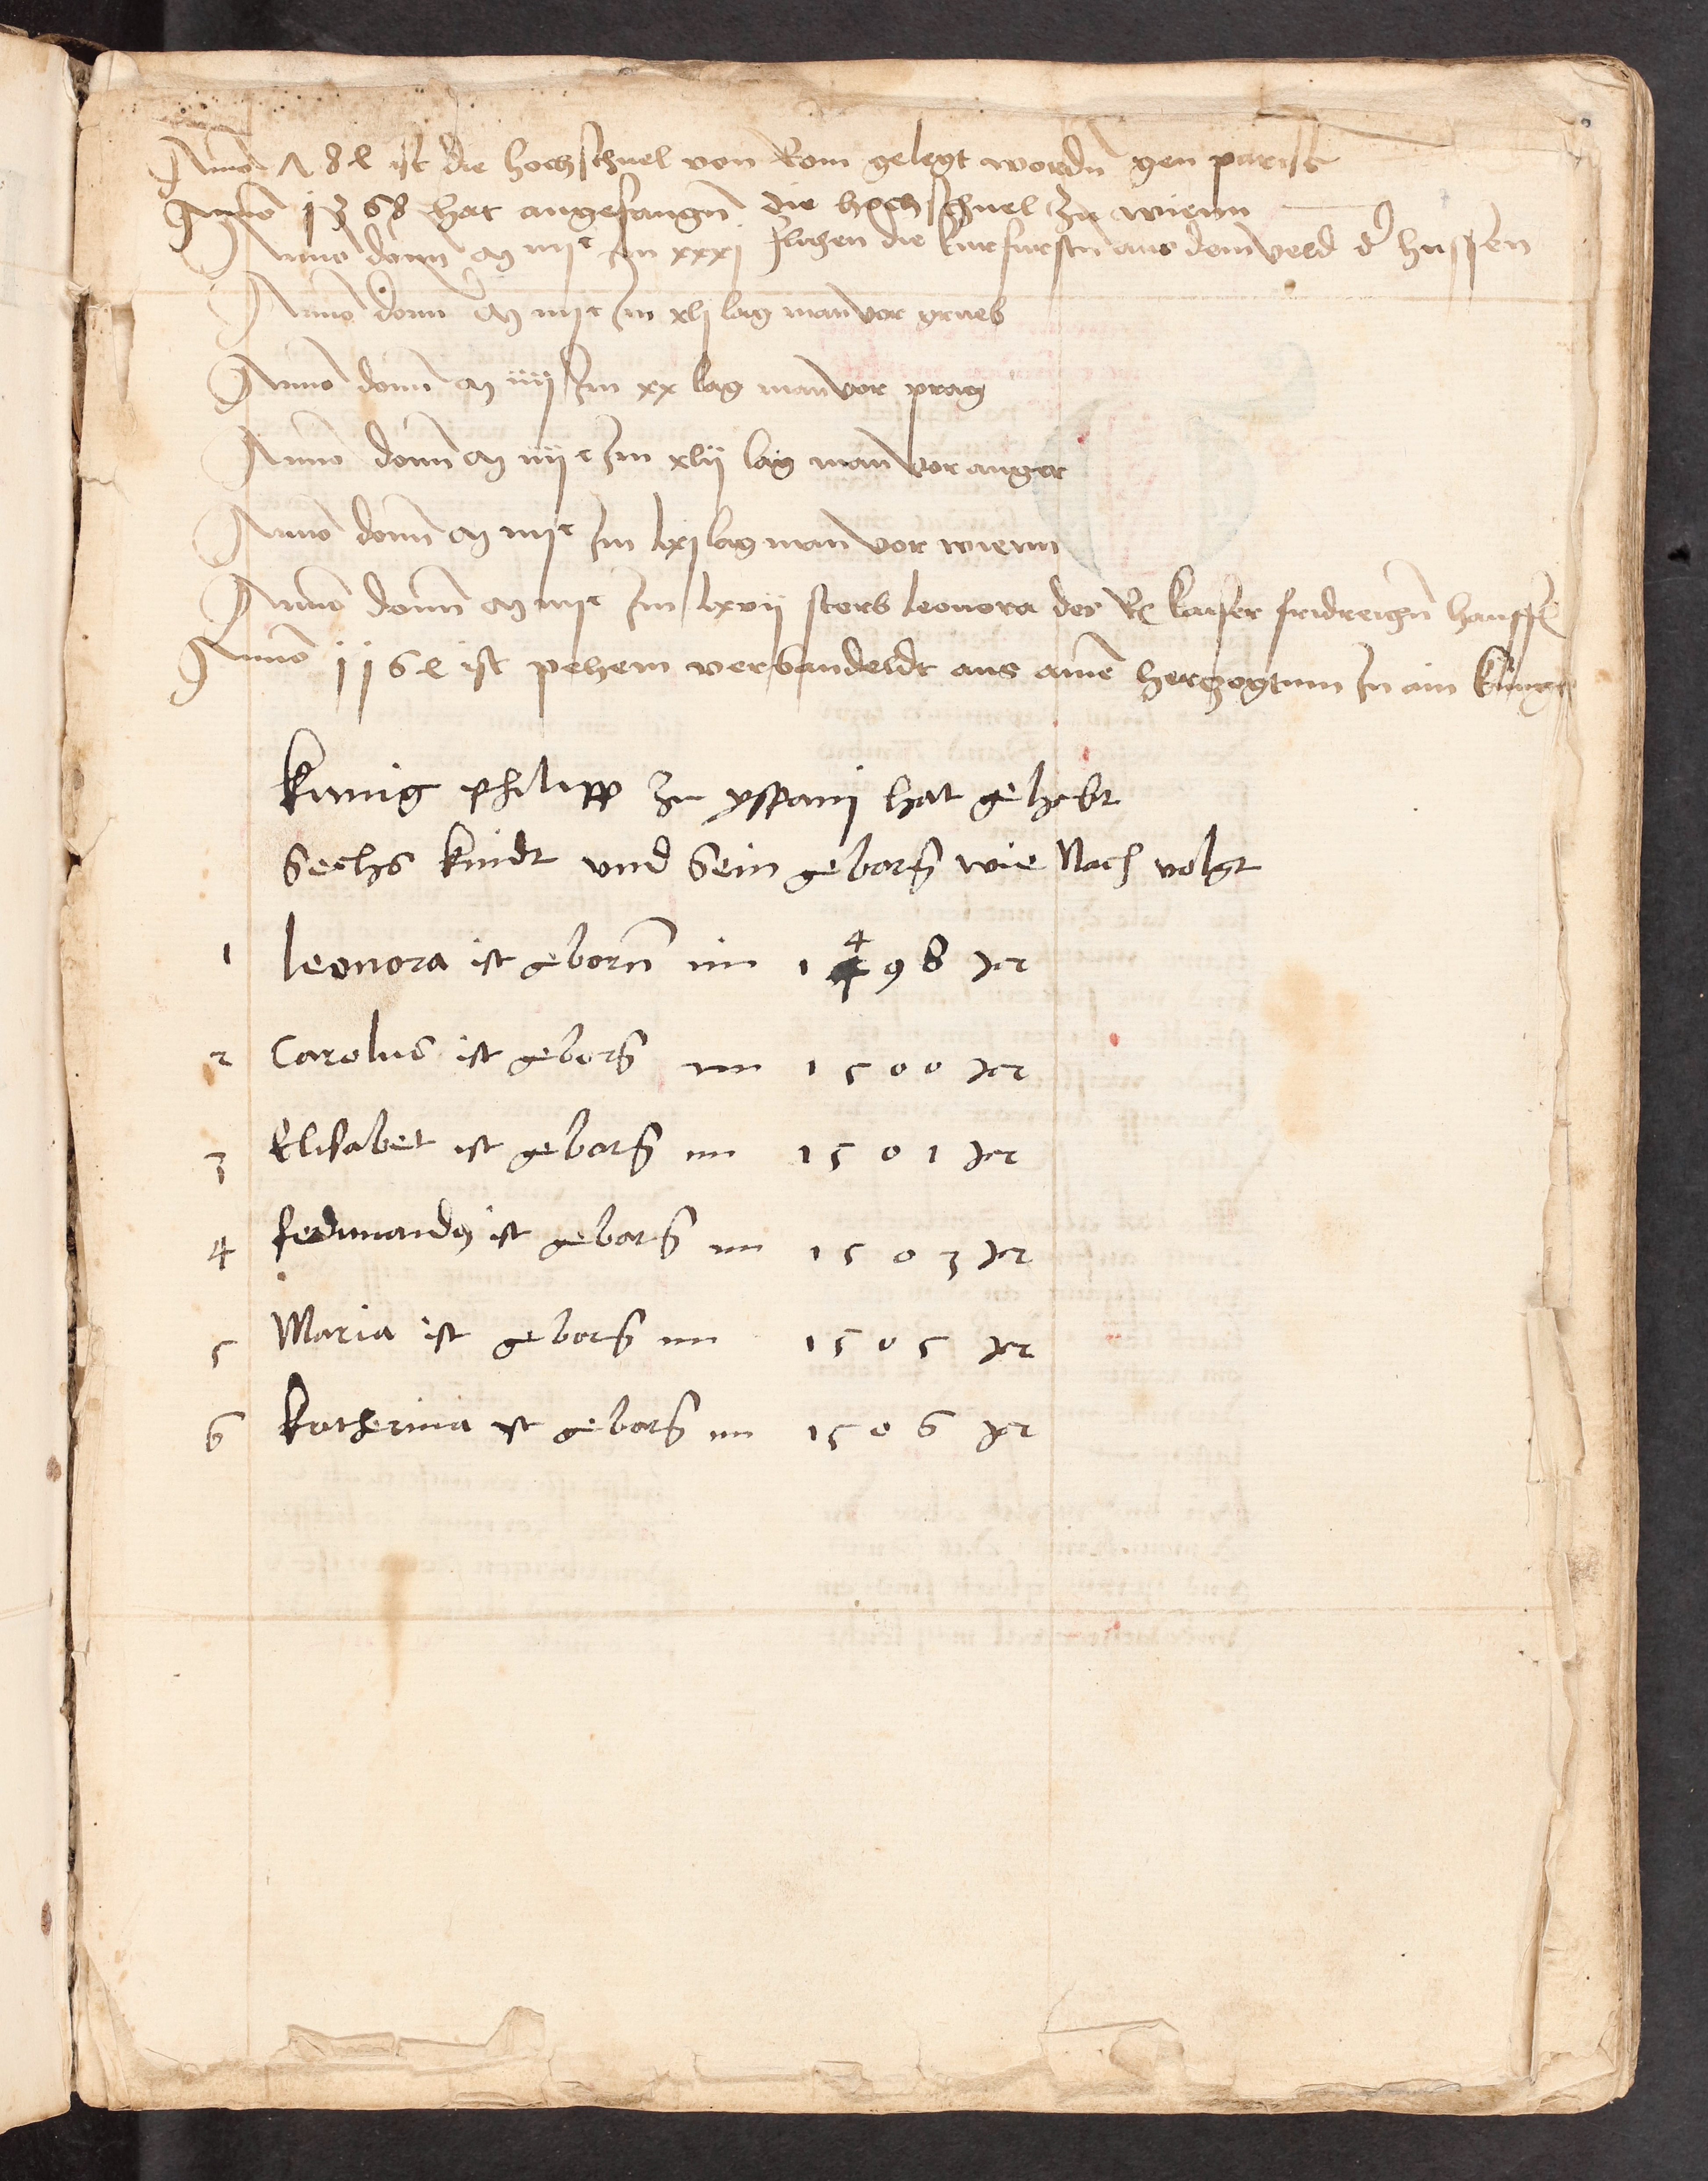 Anno 784 ist die hochschuel von Rom gelegt wordn gen pariss
Anno 1368 hat angefangn die hochschuel zu wienn
Anno domi M iiijc Im xxxj fluhen die kurfurstn aus dem veld dr hussen
Anno domi M iiijc Im xlj lag man vor grueb
Anno domi M iiij Im xx lag man vor prag
Anno domi M iiijc Im xlij lag man vor anger
Anno domi M iiijc Im lxj lag man vor wienn
Anno domi M iiijc Im lxvij starb leonora des R kaiser fridreichn hausf
Anno 1164 ist pehem verbandeldt aus aine herzogtum In ain kunigr
Kunig philipp zu yspani hat gehebt
Sechs kindt und Sein geborn wie Nach volgt
1 leonora ist geborn im 1498 Jar
2 Carolus ist geborn im 1500 Jar
3 Elisabet ist geborn im 1501 Jar
4 fedinandus ist geborn im 1503 Jar
5 Maria ist geborn im 1505 Jar
6 Katherina ist geborn im 1506 Jar